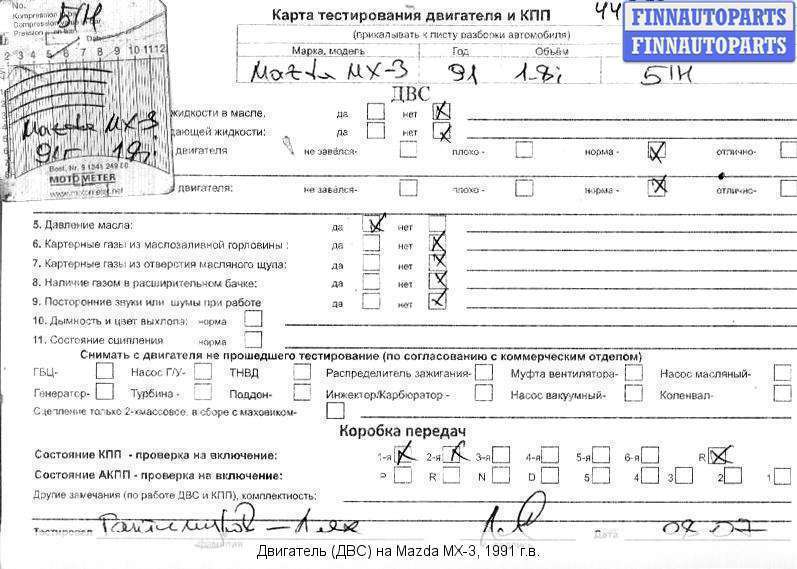 No. 51H
Карта тестирования двигателя и КПП
44
FINNAUTOPARTS
FINNAUTOPARTS
(прикалывать к листу разборки автомобиля)
Марка, модель Год Объём
Mazda MX-3 91 1.8i 51H
2 3 4 5 6 7 8 9 10 11 12
Mazda MX-3
91г 1.9i
Best. Nr. 9 1341 249 00
MOTOMETER
www.motometer.net
ДВС
жидкости в масле. да нет
дающей жидкости: да нет
двигателя не завёлся- плохо - норма - отлично-
двигателя: не завёлся- плохо - норма - отлично-
5. Давление масла: да нет
6. Картерные газы из маслозаливной горловины : да нет
7. Картерные газы из отверстия масляного щупа: да нет
8. Наличие газом в расширительном бачке: да нет
9. Посторонние звуки или шумы при работе да нет
10. Дымность и цвет выхлопа: норма
11. Состояние сцепления норма
Снимать с двигателя не прошедшего тестирование (по согласованию с коммерческим отделом)
ГБЦ- Насос Г/У- ТНВД Распределитель зажигания- Муфта вентилятора- Насос масляный-
Генератор- Турбина - Поддон- Инжектор/Карбюратор - Насос вакуумный- Коленвал-
Сцепление только 2-хмассовое, в сборе с маховиком-
Коробка передач
Состояние КПП - проверка на включение: 1-я 2-я 3-я 4-я 5-я 6-я R
Состояние АКПП - проверка на включение: P R N D 5 4 3 2 1
Другие замечания (по работе ДВС и КПП), комплектность:
Тестировал Дата 08 07
Двигатель (ДВС) на Mazda MX-3, 1991 г.в.